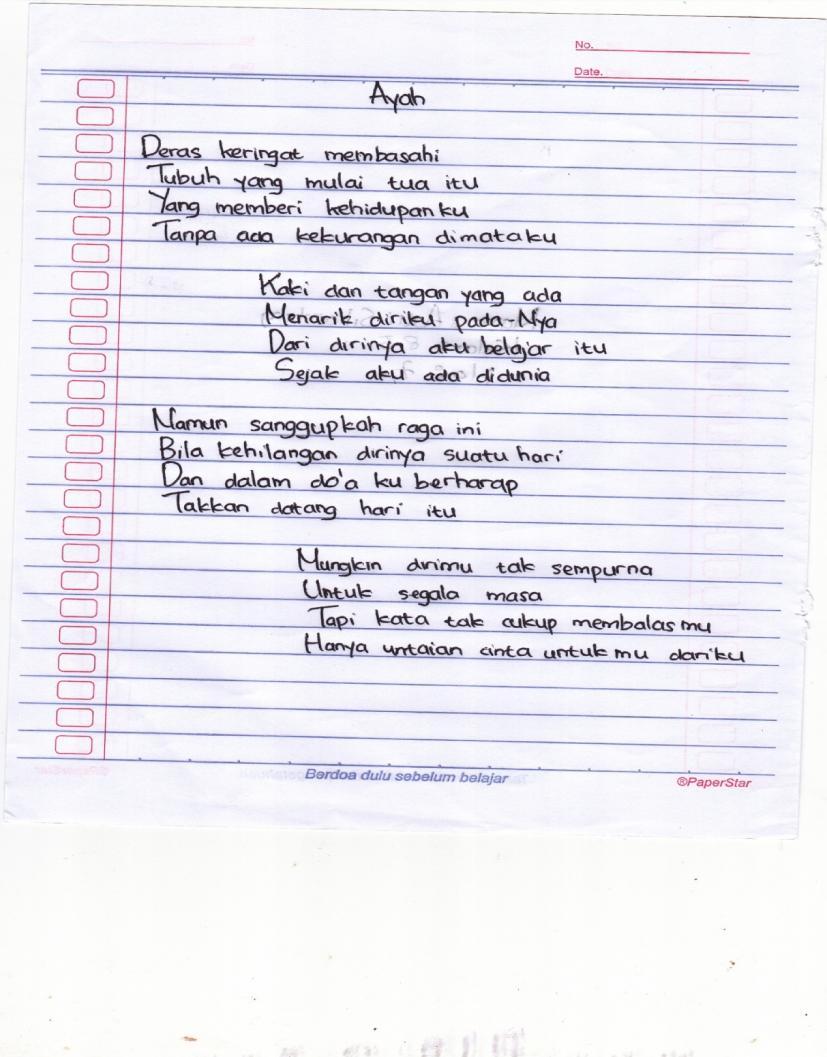 No.
Date.
Ayah
Deras keringat membasahi
Tubuh yang mulai tua itu
Yang memberi kehidupanku
Tanpa ada kekurangan dimataku
Kaki dan tangan yang ada
Menarik diriku pada-Nya
Dari dirinya aku belajar itu
Sejak aku ada didunia
Namun sanggupkah raga ini
Bila kehilangan dirinya suatu hari
Dan dalam do'a ku berharap
Takkan datang hari itu
Mungkin dirimu tak sempurna
Untuk segala masa
Tapi kata tak cukup membalasmu
Hanya untaian cinta untukmu dariku
Berdoa dulu sebelum belajar
®PaperStar